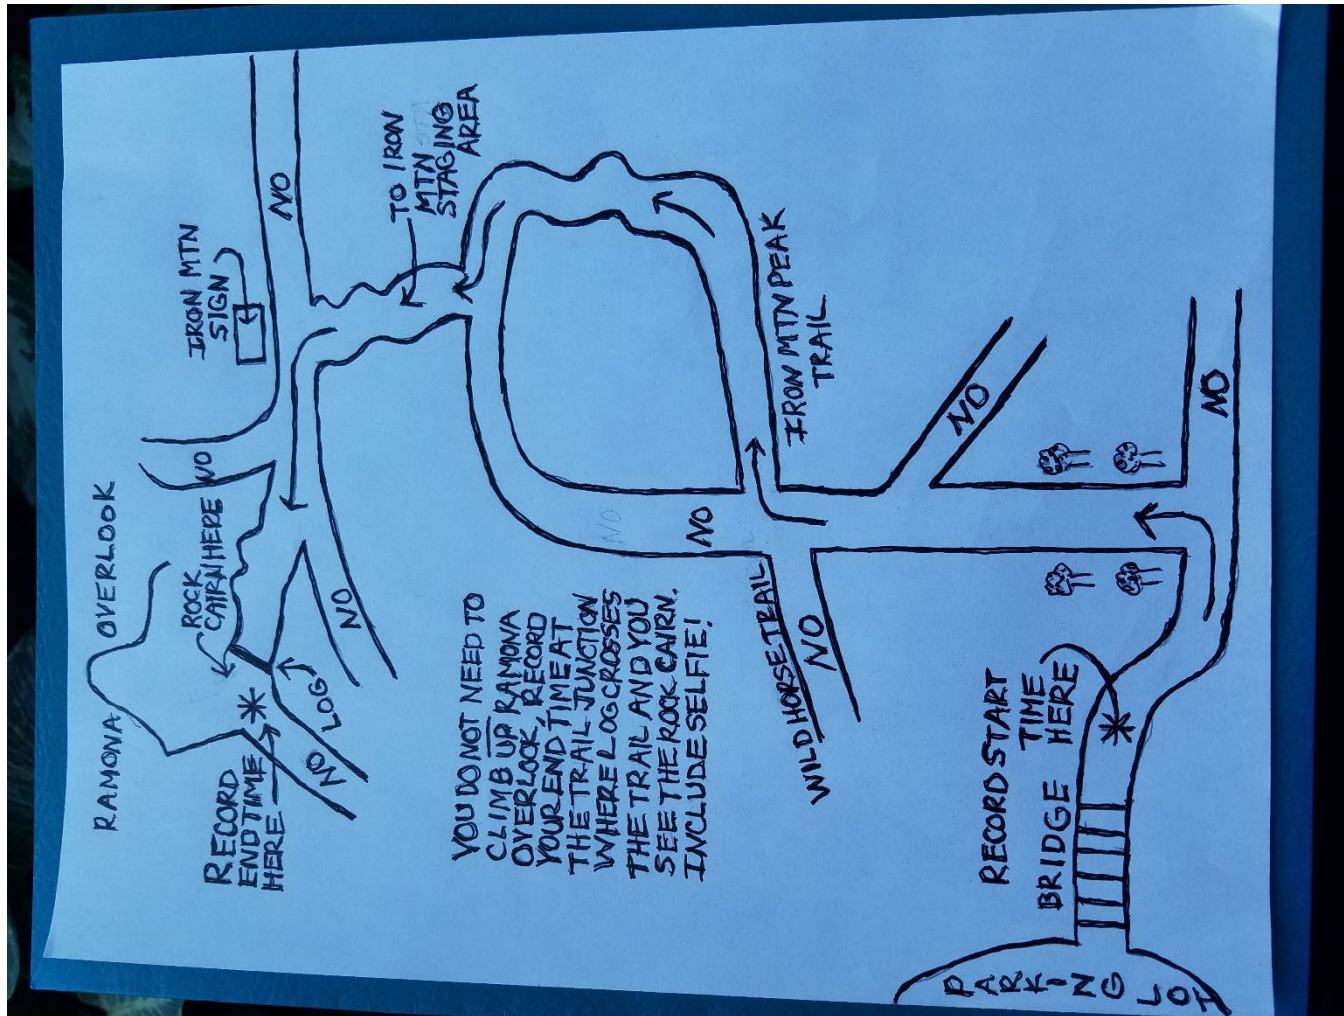 RAMONA OVERLOOK
ROCK
CAIRN HERE
NO
IRON MTN
SIGN
NO
RECORD
END TIME
HERE
NO
LOG
NO
TO IRON
MTN
STAGING
AREA
YOU DO NOT NEED TO
CLIMB UP RAMONA
OVERLOOK, RECORD
YOUR END TIME AT
THE TRAIL JUNCTION
WHERE LOG CROSSES
THE TRAIL AND YOU
SEE THE ROCK CAIRN.
INCLUDE SELFIE!
NO
NO
IRON MTN PEAK
TRAIL
WILD HORSE TRAIL
NO
NO
RECORD START
TIME
HERE
BRIDGE
NO
PARKING LOT